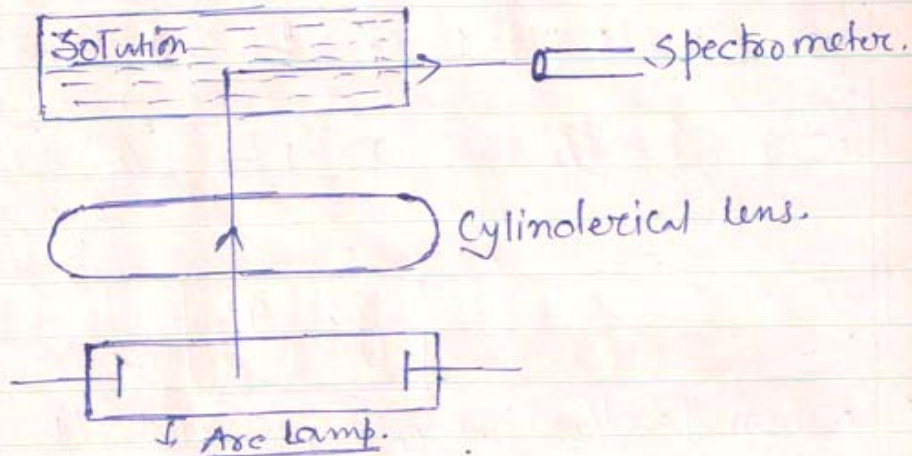 Solution
Spectrometer.
Cylinderical lens.
Arc Lamp.